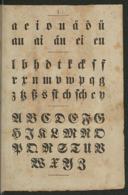 1
a e i o u ä ö ü
au ai äu ei eu
l b h d t k c k f f
r x n m v w p q g
z tz ß s st ch sch c y
A B C D E F G
H I K L M N O
P Q R S T U V
W X Y Z